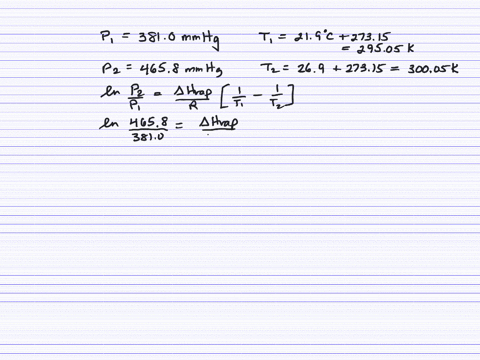 P₁ = 381.0 mmHg T₁ = 21.9°C + 273.15
= 295.05 K
P₂ = 465.8 mmHg T₂ = 26.9 + 273.15 = 300.05 K
ln P₂/P₁ = ΔHvap/R [1/T₁ - 1/T₂]
ln 465.8/381.0 = ΔHvap